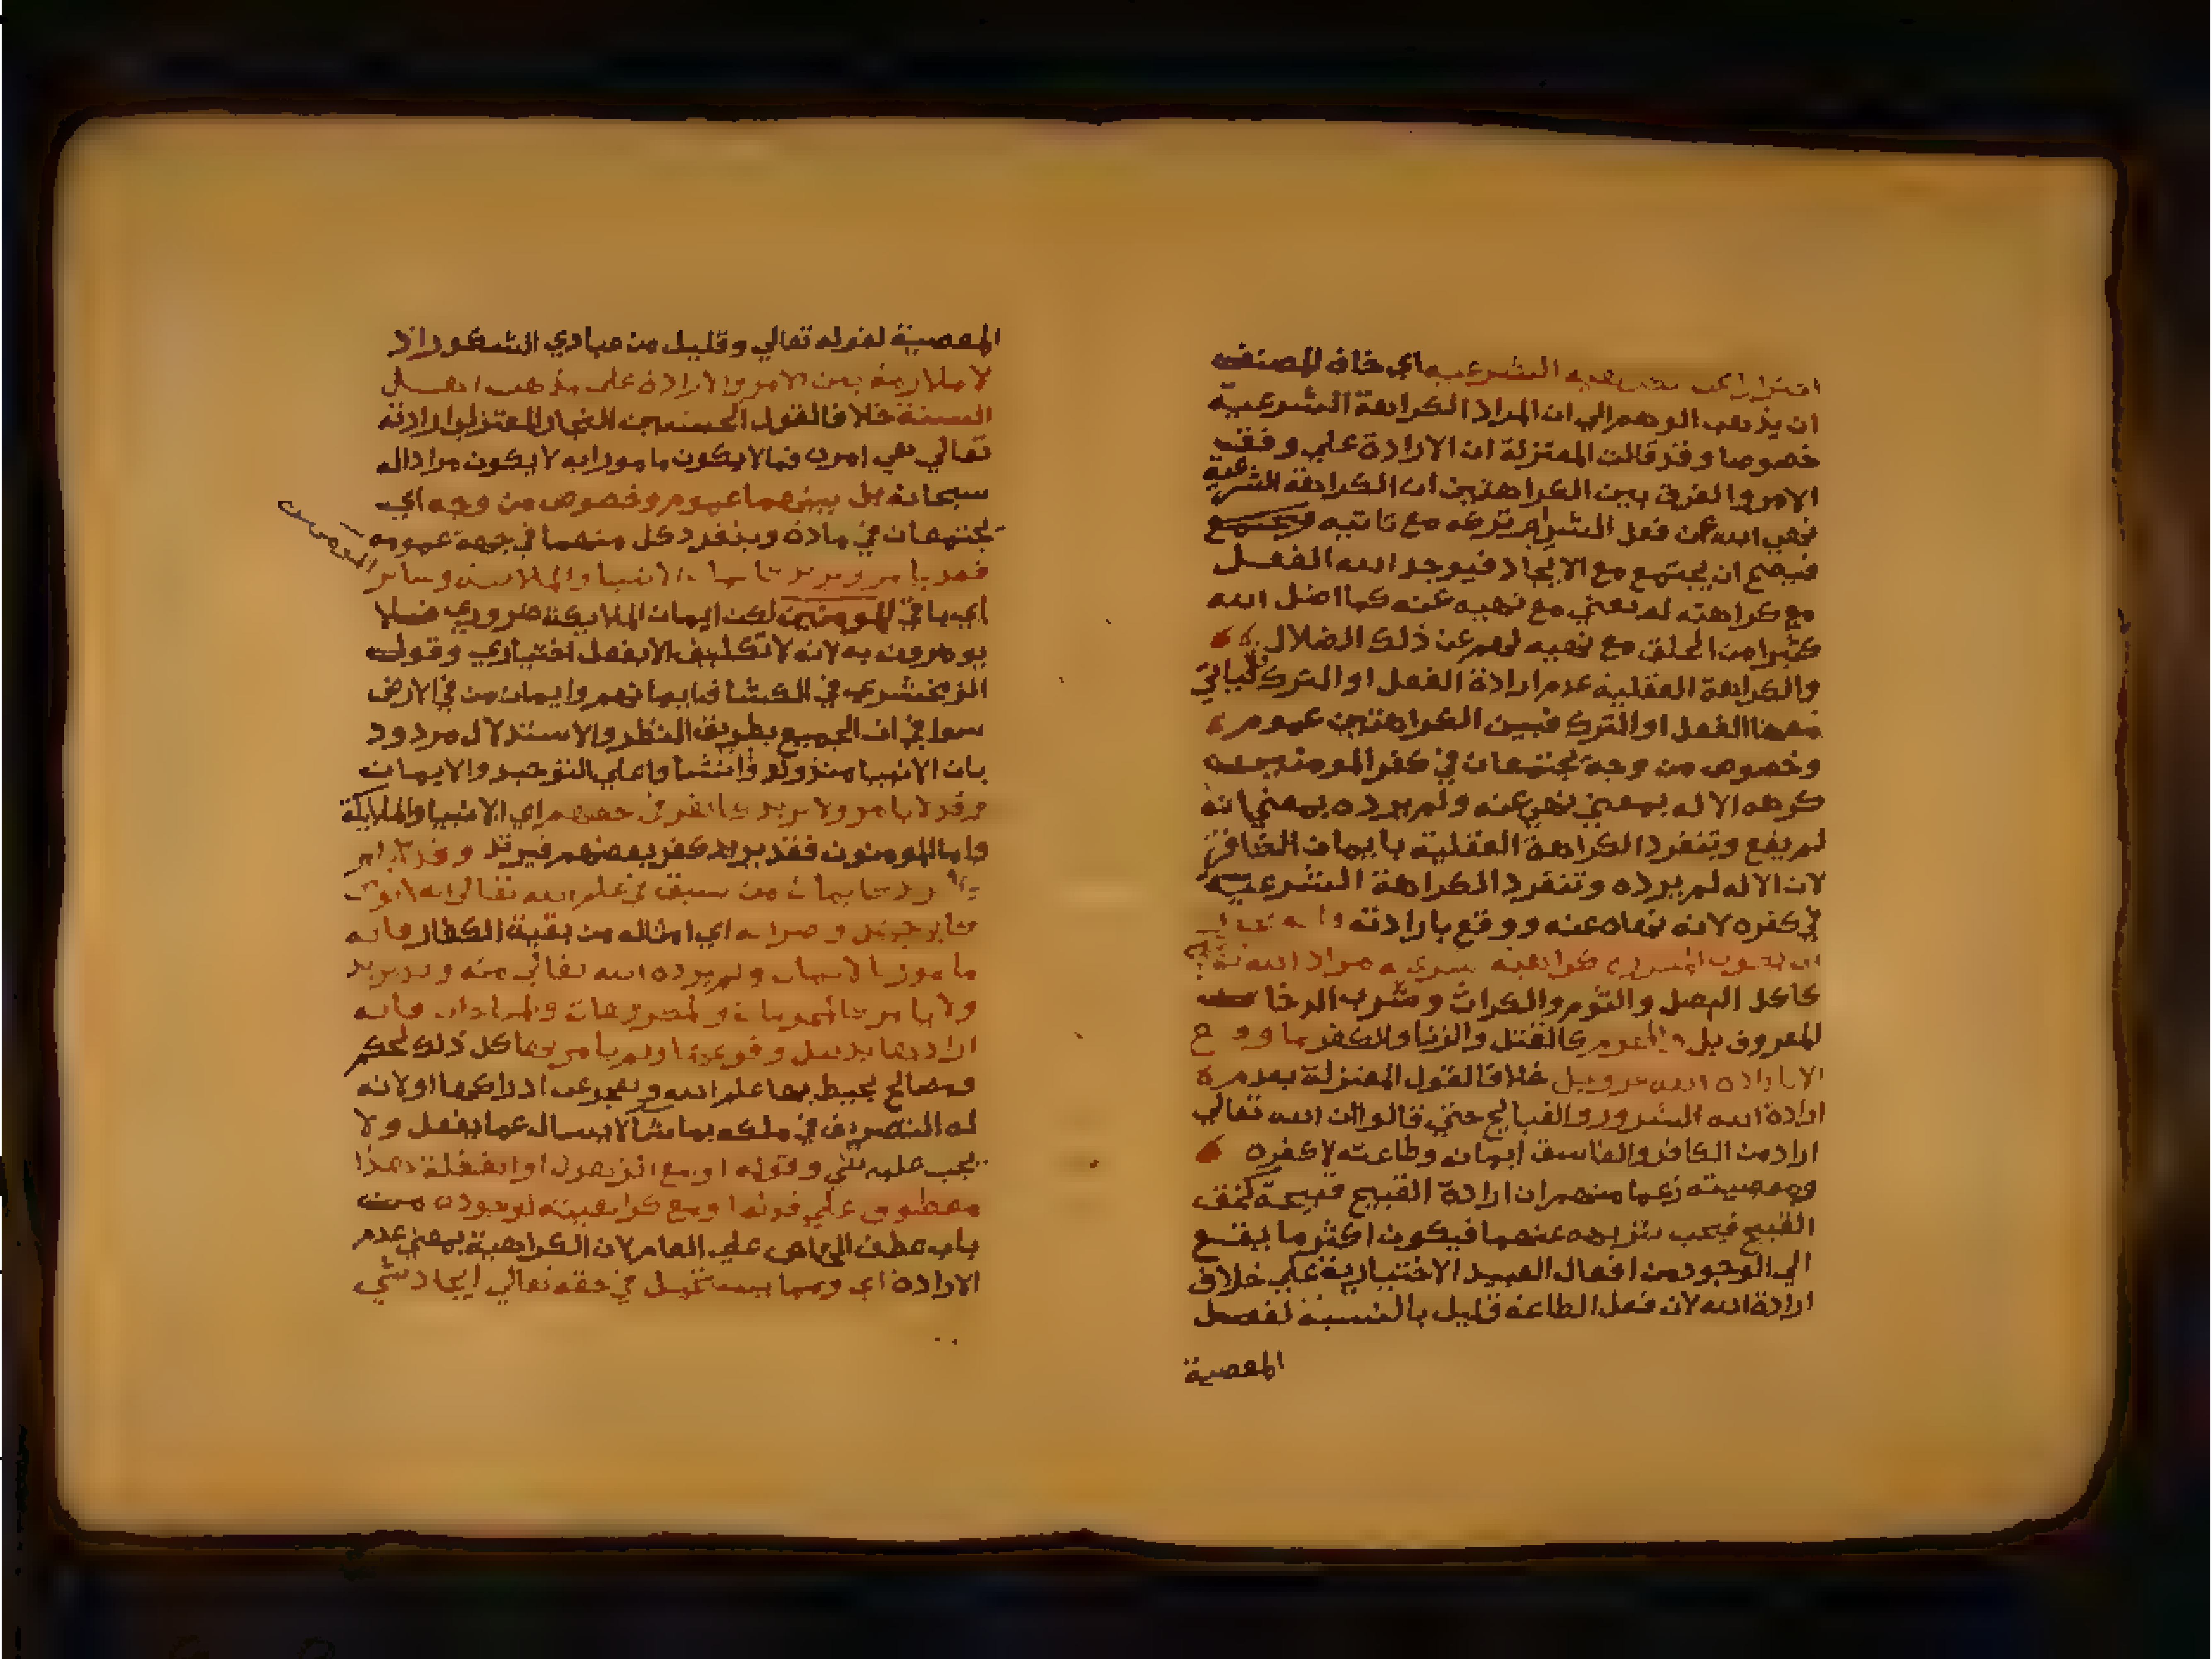 احترازا عن الكراهية الشرعية اي خاف المصنف
ان يذهب الوهم الي ان المراد الكراهة الشرعية
خصوصا وقد قالت المعتزلة ان الارادة علي وفق
الامر والفرق بين الكراهتين ان الكراهة الشرعية
نهي الله عن فعل الشي
فيصح ان يجتمع مع الايجاد فيوجد الله الفعل
مع كراهته له بمعني مع نهيه عنه كما اضل الله
كثيرا من الخلق مع نهيه لهم عن ذلك الضلال
والكراهة العقلية عدم ارادة الفعل او الترك
معها الفعل او الترك فبين الكراهتين عموم
وخصوص من وجه يجتمعان في كفر المومنين
كرهه الاله بمعني نهي عنه ولم يرده بمعني انه
لم يقع وتنفرد الكراهة العقلية بايمان الكافر
لان الاله لم يرده وتنفرد الكراهة الشرعية
في كفره لانه نهاه عنه ووقع بارادته
مراد الله تعالي
كاكل البصل والثوم والكراث وشرب الدخان
المعروف بل والمحرم كالقتل والزنا والكفر
الا بارادة الله عز وجل خلافا لقول المعتزلة بعدم
ارادة الله الشرور والقبايح حتي قالوا ان الله تعالي
اراد من الكافر والفاسق ايمانه وطاعته لا كفره
ومعصيته زعما منهم ان ارادة القبيح قبيحة كخلق
القبيح فيجب تنزيهه عنهما فيكون اكثر ما يقع
الي الوجود من افعال العبيد الاختيارية علي خلاف
ارادة الله لان فعل الطاعة قليل بالنسبة لفعل
المعصية
المعصية لقوله تعالي وقليل من عبادي الشكور اذ
لا ملازمة بين الامر والارادة علي مذهب اهل
السنة خلافا لقول الحسين النجار المعتزلي ارادته
تعالي هي امره فما لا يكون مامورا به لا يكون مرادا له
سبحانه بل بينهما عموم وخصوص من وجه اي
يجتمعان في مادة وينفرد كل منهما في جهة عمومه
فقد يامر ويريد كايمان الانبيا والملايكة وساير
المومنين
اي باقي المومنين لكن ايمان الملايكة ضروري فلا
يومرون به لانه لا تكليف الا بفعل اختياري وقول
الزمخشري في الكشاف ايمانهم وايمان من في الارض
سوا في ان الجميع بطريق النظر والاستدلال مردود
بان الانبيا منذ ولدوا نشاوا علي التوحيد والايمان
وقد لا يامر ولا يريد كالكفر في حقهم اي الانبيا والملايكة
واما المومنون فقد يريد كفر بعضهم فيرتد وقد يامر
ولا يريد كايمان من سبق في علم الله تعالي انه لا يومن
كابي جهل وضرابه اي امثاله من بقية الكفار فانه
مامور بالايمان ولم يرده الله تعالي منه وقد يريد
ولا يامر كالحرمات والمكروهات والمباحات فانه
ارادها بدليل وقوعها ولم يامر بها كل ذلك لحكم
ومصالح يحيط بها علم الله ونعجز عن ادراكها او لانه
له التصريف في ملكه بما شا لا يسال عما يفعل ولا
يجب عليه شي وقوله او مع الذهول او الغفلة هذا
معطوف علي قوله او مع كراهيته لوجوده من
باب عطف الخاص علي العام لان الكراهية بمعني عدم
الارادة اي ومما يستحيل في حقه تعالي ايجاد شي